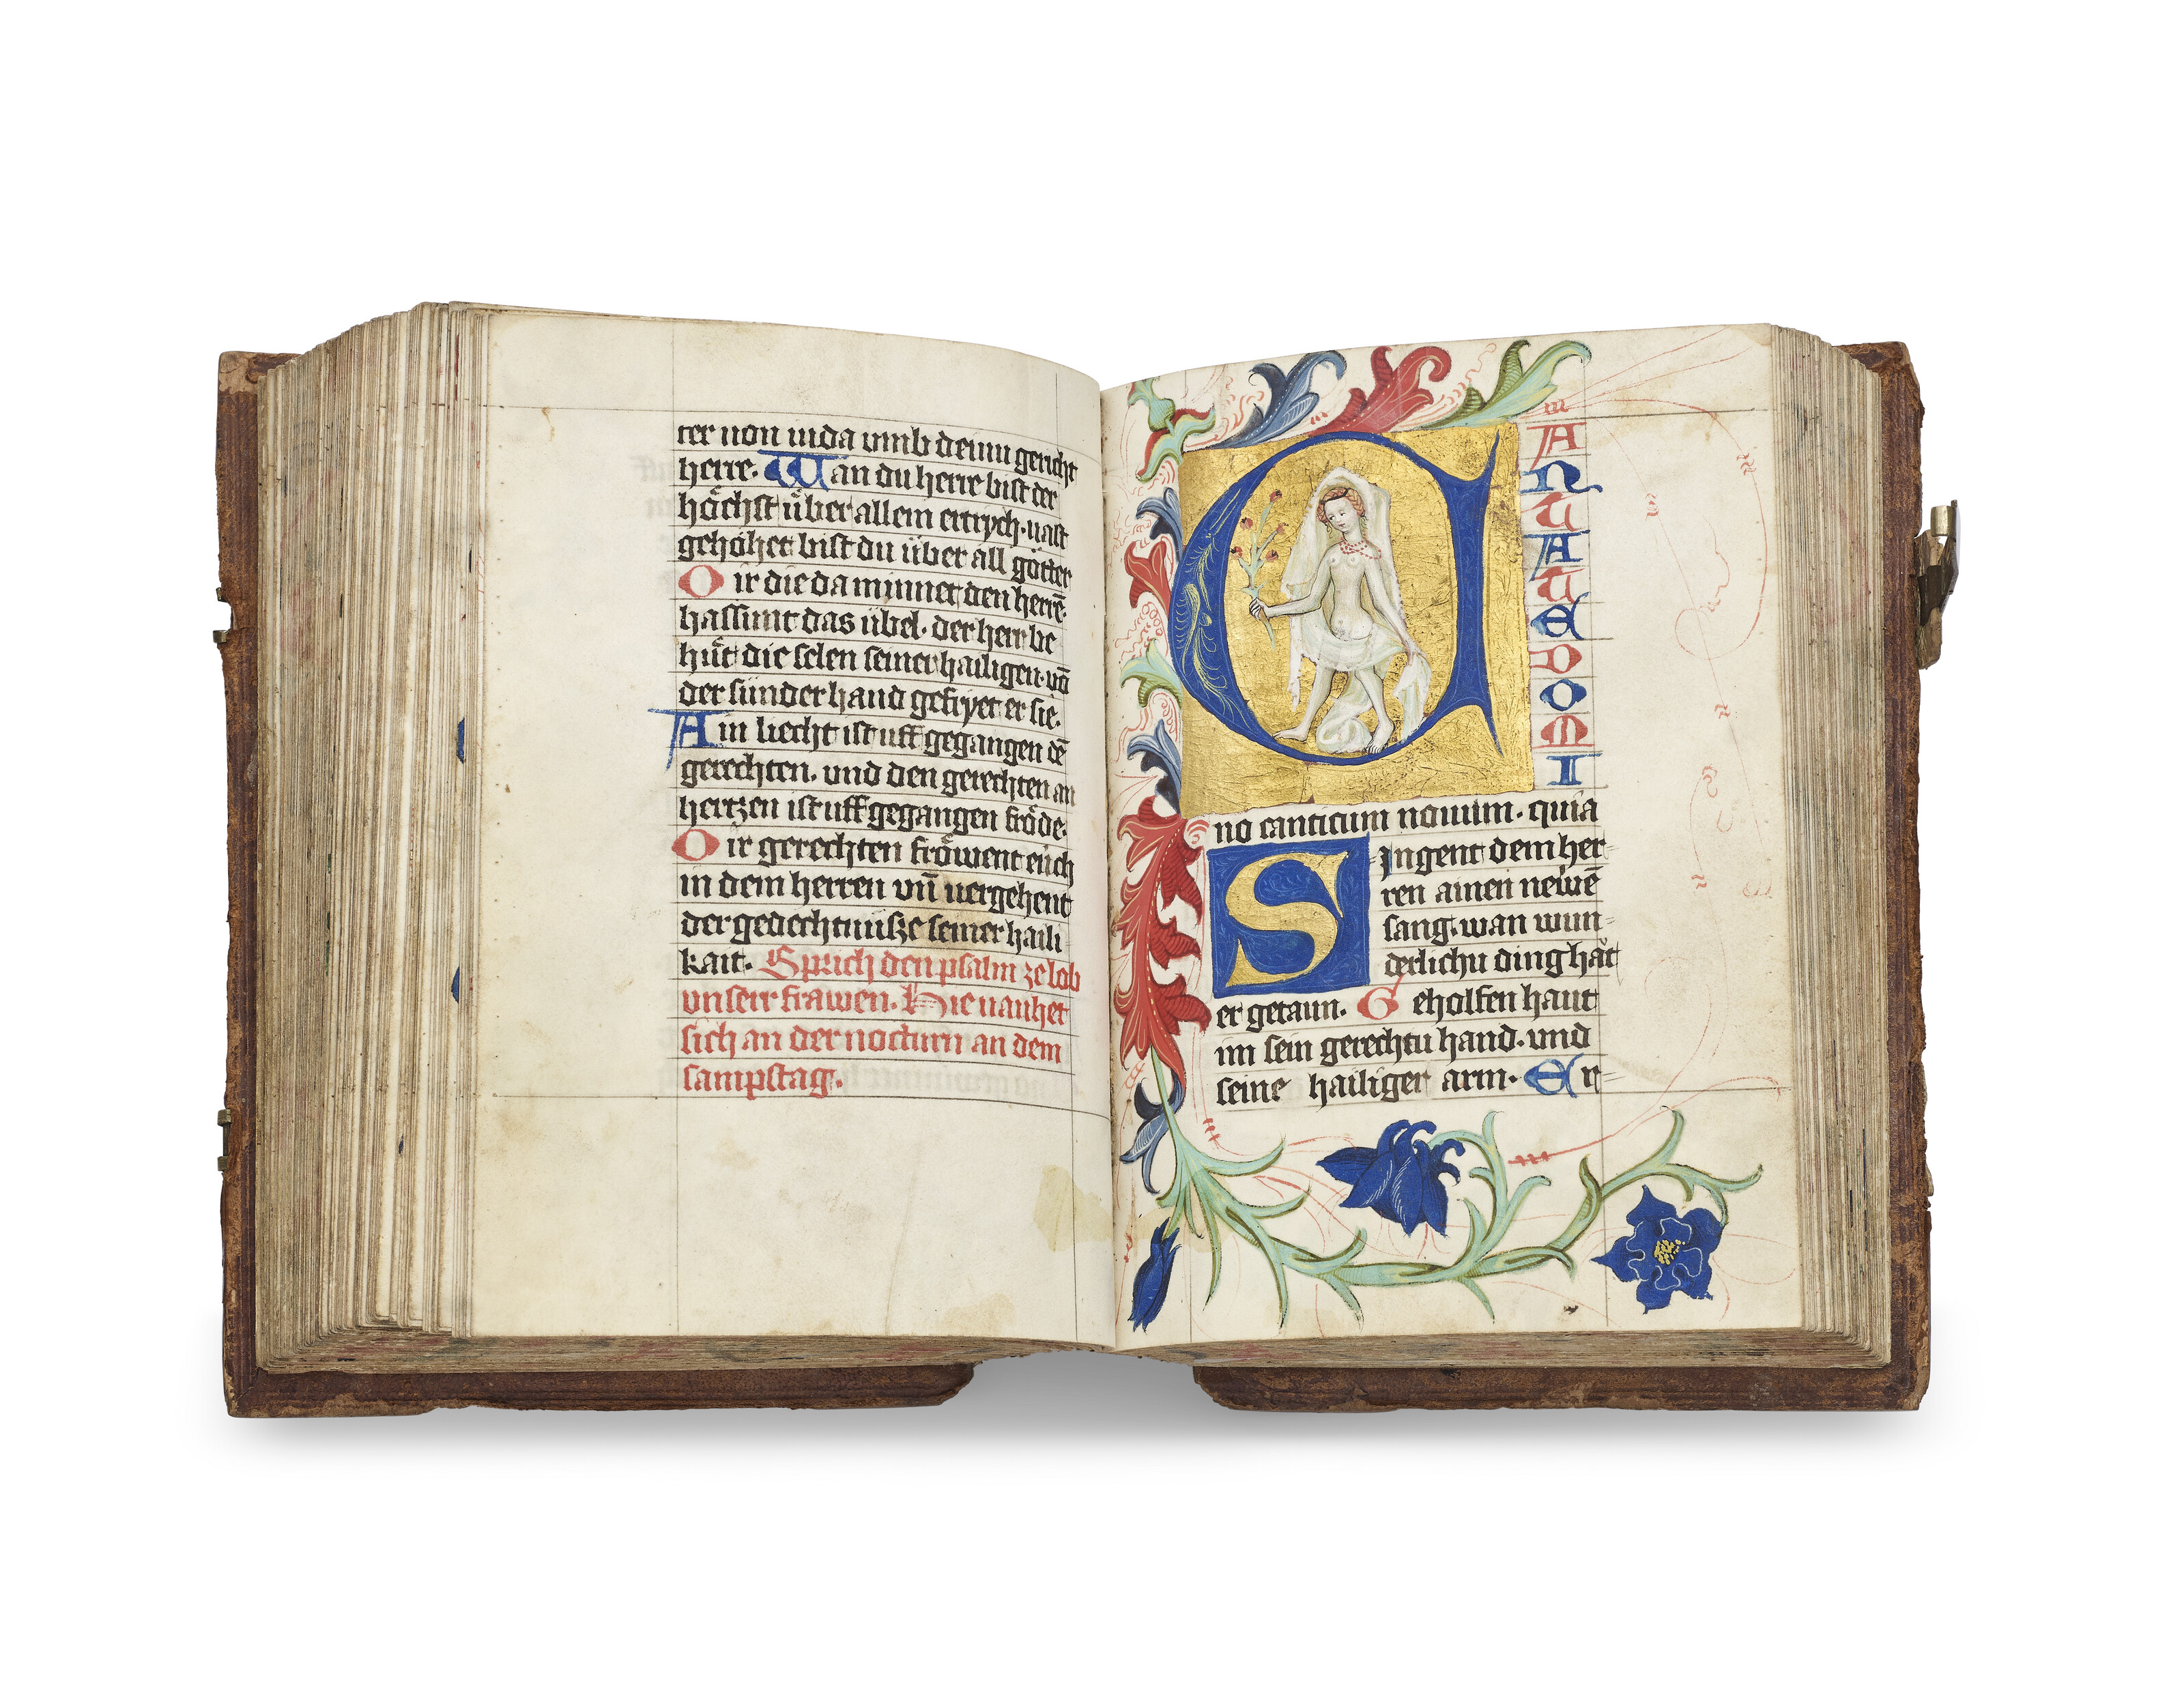 ter von inda vmb deinu gericht
herre. Wan du herre bist der
höchst über allem ertrych. vast
gehöhet bist du über all götter
O ir die da minnet den herrē.
hassunt das übel. der herr be
hüt die selen seiner hailigen. vō
der sünder hand gefryet er sie.
Ain liecht ist uff gegangen dē
gerechten. vnd den gerechten an
hertzen ist uff gegangen fröde.
O ir gerechten fröwent eüch
in dem herren vn̄ vergehent
der gedechtnusze seiner haili
kait. Sprich den psalm ze lob
vnserr frawen. Hie vauhet
sich an der nocturn an dem
sampstag.
CANTATE DOMI
no canticum nouum. quia
Singent dem her
ren ainen newē
sang. wan wun
derlichu ding hāt
er getaun. Geholfen haut
im sein gerechtu hand. vnd
seine hailiger arm. Er